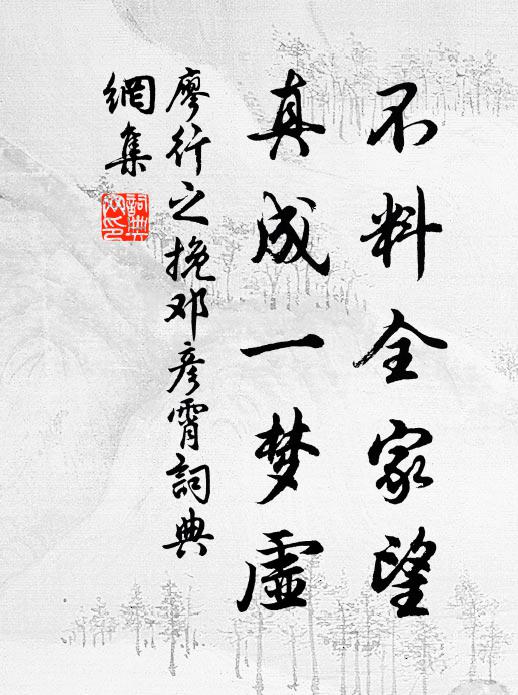 不料全家望
真成一梦虚
廖行之挽邓彦霄詞典
網集
詞典
网印